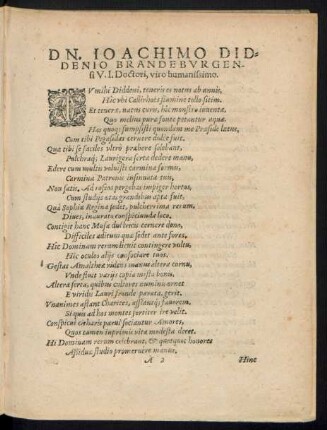 DN. IOACHIMO DID-
DENIO BRANDEBVRGEN-
si V. I. Doctori, viro humanissimo.
TV mihi Diddeni, teneris es notus ab annis,
Hic vbi Callirhoës flumine tollo sitim.
Et teneræ, natus cum, hic monstra iuuentæ,
Quo melius puro fonte petantur aquæ.
Hos quoque sumpsisti quondam me Præsule latex,
Cum tibi Pegasides cernere dulce fuit.
Qua tibi se faciles vltro præbere solebant,
Pulchraque Laurigera serta dedere manu,
Edere cum multis voluisti carmina formis,
Carmina Patronis insinuata tuis,
Non satis, Ad rosens pergebas impiger hortos,
Cum studijs ætas grandibus apta fuit.
Qua Sophia Regina sedet, pulcherrima rerum,
Diues, inaurato conspicienda loco,
Contigit hanc Musæ dulcentis cernere dono,
Difficiles aditus qua sedet ante fores,
Hic Dominam rerum licuit contingere vultu,
Hic oculos alijs consociare tuis.
Gestat Amaltheæ vultus inaurea altera cornu,
Vnde fluit varijs copia mista bonis,
Altera serta, quibus cultores numinis ornet
E viridi Lauri fronde parata, gerit.
Vnanimes astant Charites, afflantque fauorem,
Si quis ad has montes fortiter ire velit.
Conspicui citharis parui sociantur Amores,
Quos tamen inprimis vita modesta decet.
Hi Dominam rerum celebrant, & quotquot honores
Assiduæ studio promeruere manus,
A 2
Hinc